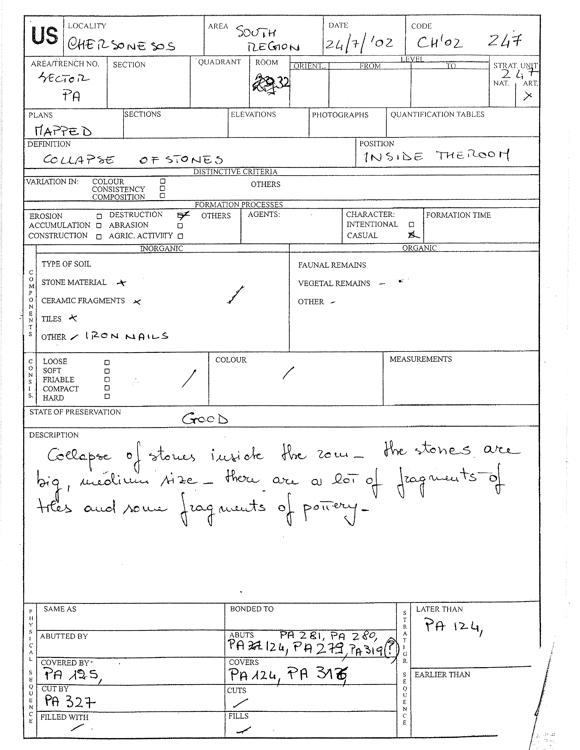 US
LOCALITY
CHERSONESOS
AREA SOUTH REGION
DATE
24/7/'02
CODE
CH'02 247
AREA/TRENCH NO.
SECTOR
PA
SECTION
QUADRANT
ROOM
32
LEVEL
ORIENT. FROM TO
STRAT. UNIT
247
NAT. ART.
x
PLANS
MAPPED
SECTIONS
ELEVATIONS
PHOTOGRAPHS
QUANTIFICATION TABLES
DEFINITION
COLLAPSE OF STONES
POSITION
INSIDE THE ROOM
DISTINCTIVE CRITERIA
VARIATION IN: COLOUR
CONSISTENCY
COMPOSITION
OTHERS
FORMATION PROCESSES
EROSION DESTRUCTION OTHERS
ACCUMULATION ABRASION
CONSTRUCTION AGRIC. ACTIVITY
AGENTS:
CHARACTER:
INTENTIONAL
CASUAL
FORMATION TIME
COMPONENTS
INORGANIC
TYPE OF SOIL
STONE MATERIAL x
CERAMIC FRAGMENTS x
TILES x
OTHER / IRON NAILS
ORGANIC
FAUNAL REMAINS
VEGETAL REMAINS -
OTHER -
CONSIS.
LOOSE
SOFT
FRIABLE
COMPACT
HARD
/
COLOUR
/
MEASUREMENTS
STATE OF PRESERVATION
GOOD
DESCRIPTION
Collapse of stones inside the room - the stones are
big, medium size - there are a lot of fragments of
tiles and some fragments of pottery -
PHYSICAL SEQUENCE
SAME AS
BONDED TO
ABUTTED BY
ABUTS PA 281, PA 280,
124, PA 279, PA 319 (?)
COVERED BY
PA 195,
COVERS
PA 124, PA
CUT BY
PA 327
CUTS
/
FILLED WITH
/
FILLS
/
STRATIGR. SEQUENCE
LATER THAN
PA 124,
EARLIER THAN